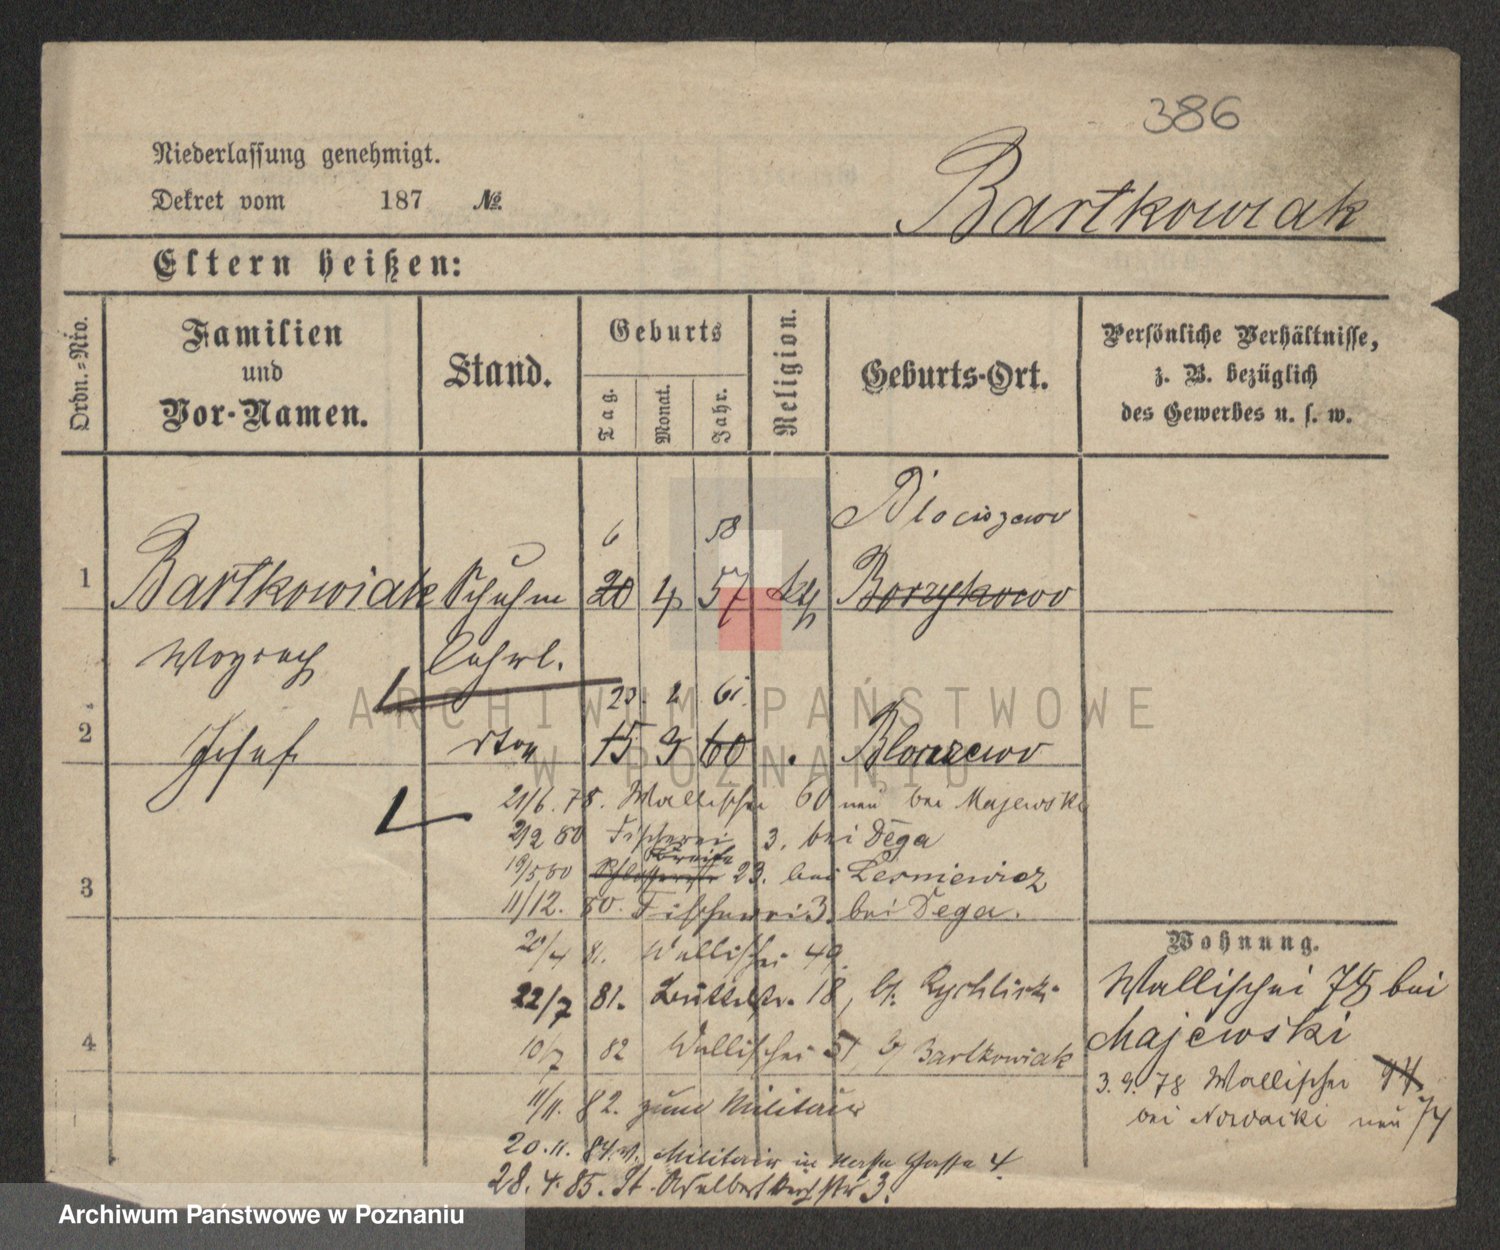 386
Niederlassung genehmigt.
Dekret vom 187 №
Bartkowiak
Eltern heißen:
Ordn.-Nro.
Familien
und
Vor-Namen.
Stand.
Geburts
Tag.
Monat.
Jahr.
Religion.
Geburts-Ort.
Persönliche Verhältnisse,
z. B. bezüglich
des Gewerbes u. s. w.
6 58 Blociszewo
1 Bartkowiak Schuhm 20 4 57 kth Borzykowo
Woyciech Lehrl.
23. 2 61.
2 Josef 15 9 60 Blociszewo
21/6. 78. Wallischei 60 neu bei Majewski
2/2 80 Fischerei 3. bei Dega
Breite
19/5 80 23. bei Lesniewicz
3
11/12. 80. Fischerei 3. bei Dega.
20/4 81. Wallischei 49.
22/7 81. 18, b. Rychlicki
4
10/7 82 Wallischei 51 b. Bartkowiak
11/11. 82. zum Militair
20.11. 84. v. Militair in Gasse 4.
28. 4. 85. St. Adalbertkirchstr 3.
Wohnung.
Wallischei 78 bei
Majewski
3. 9. 78 Wallischei
bei Nowacki neu 74
ARCHIWUM PAŃSTWOWE
W POZNANIU
Archiwum Państwowe w Poznaniu